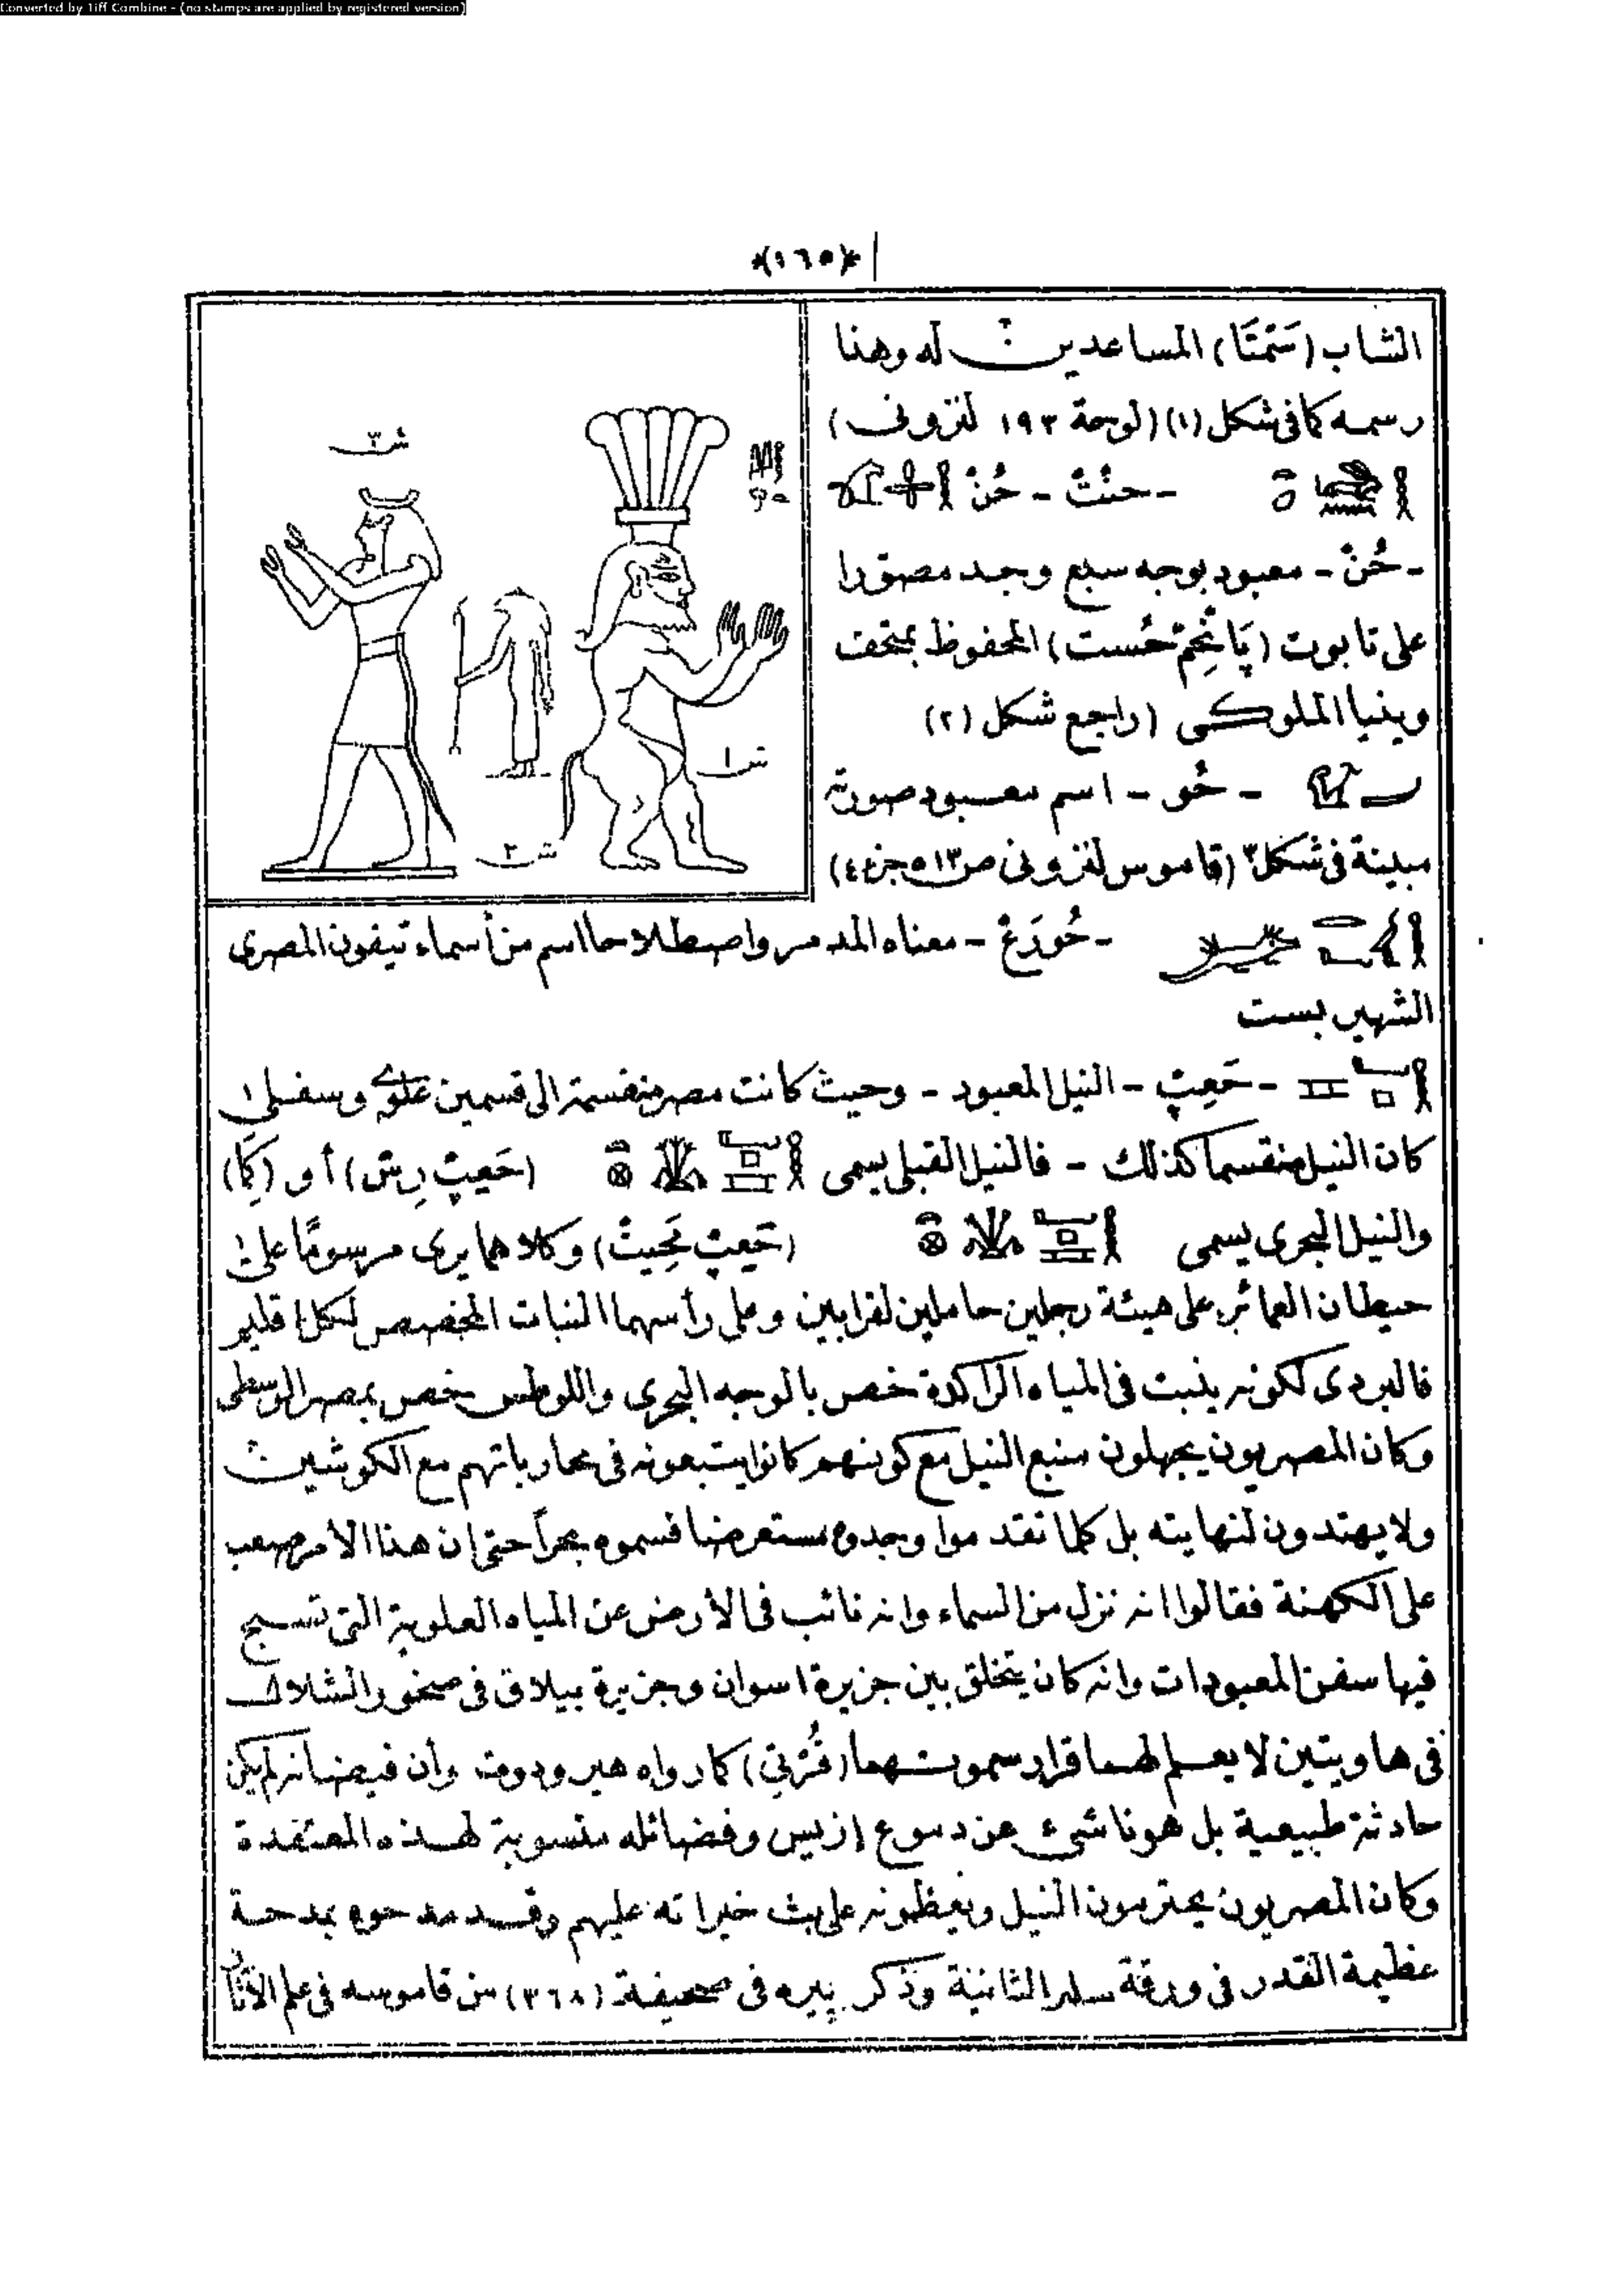 Converted by Tiff Combine - (no stamps are applied by registered version)
*(١٦٥)*
الشاب (سَمْتَا) المساعدين له وهنا
رسمه كما فى شكل (١) (لوحة ١٩٣ لنزونى)
- حنْتْ - حُنْ
- حُنْ - معبود بوجه سبع وجد مصوّرا
على تابوت المحفوظ بمتحف
وينيا الملوكى (راجع شكل (٢)
- حُو - اسم معبود صورته
مبينة فى شكل ٣ (قاموس لنزونى ص ٥١٣ جزء ٤)
ش ٣
ش ١
ش ٢
- حُورَعْ - معناه المدمر واصطلاحا اسم من أسماء تيفون المصرى
الشهير بست
- حَعِپْ - النيل المعبود - وحيث كانت مصر منقسمة الى قسمين علوى وسفلى
كان النيل منقسما كذلك - فالنيل القبلى يسمى (حَعِپْ رِسْ) أو (كَا)
والنيل البحرى يسمى (حَعِپْ مَحِيتْ) وكلاهما يرى مرسومًا على
حيطان العمائر على هيئة رجلين حاملين لقرابين وعلى رأسهما النبات المخصص لكل اقليم
فالبردى لكونه ينبت فى المياه الراكدة خص بالوجه البحرى واللوطس خص بمصر الوسطى
وكان المصريون يجهلون منبع النيل مع كونهم كانوا يتبعونه فى محارباتهم مع الكوشيين
ولا يهتدون لنهايته بل كلما تقدموا وجدوه مستعرضا فسموه بحراً حتى ان هذا الأمر صعب
على الكهنة فقالوا انه نزل من السماء وانه نائب فى الأرض عن المياه العلوية التى تسبح
فيها سفن المعبودات وانه كان يتخلق بين جزيرة اسوان وجزيرة بيلاق فى صخور الشلال
فى هاويتين لا يعلم لهما قرار سموتهما (قُرْتِى) كما رواه هيرودوت وأن فيضانه لم يكن
حادثة طبيعية بل هو ناشىء عن دموع إزيس وفضائله منسوبة لهذه المعتقدة
وكان المصريون يحترمون النيل ويعظمونه على بث خيراته عليهم وقد مدحوه بمدحة
عظيمة القدر فى ورقة سلير الثانية وذكر پيره فى صحيفة (٣٦٨) من قاموسه فى علم الآثار